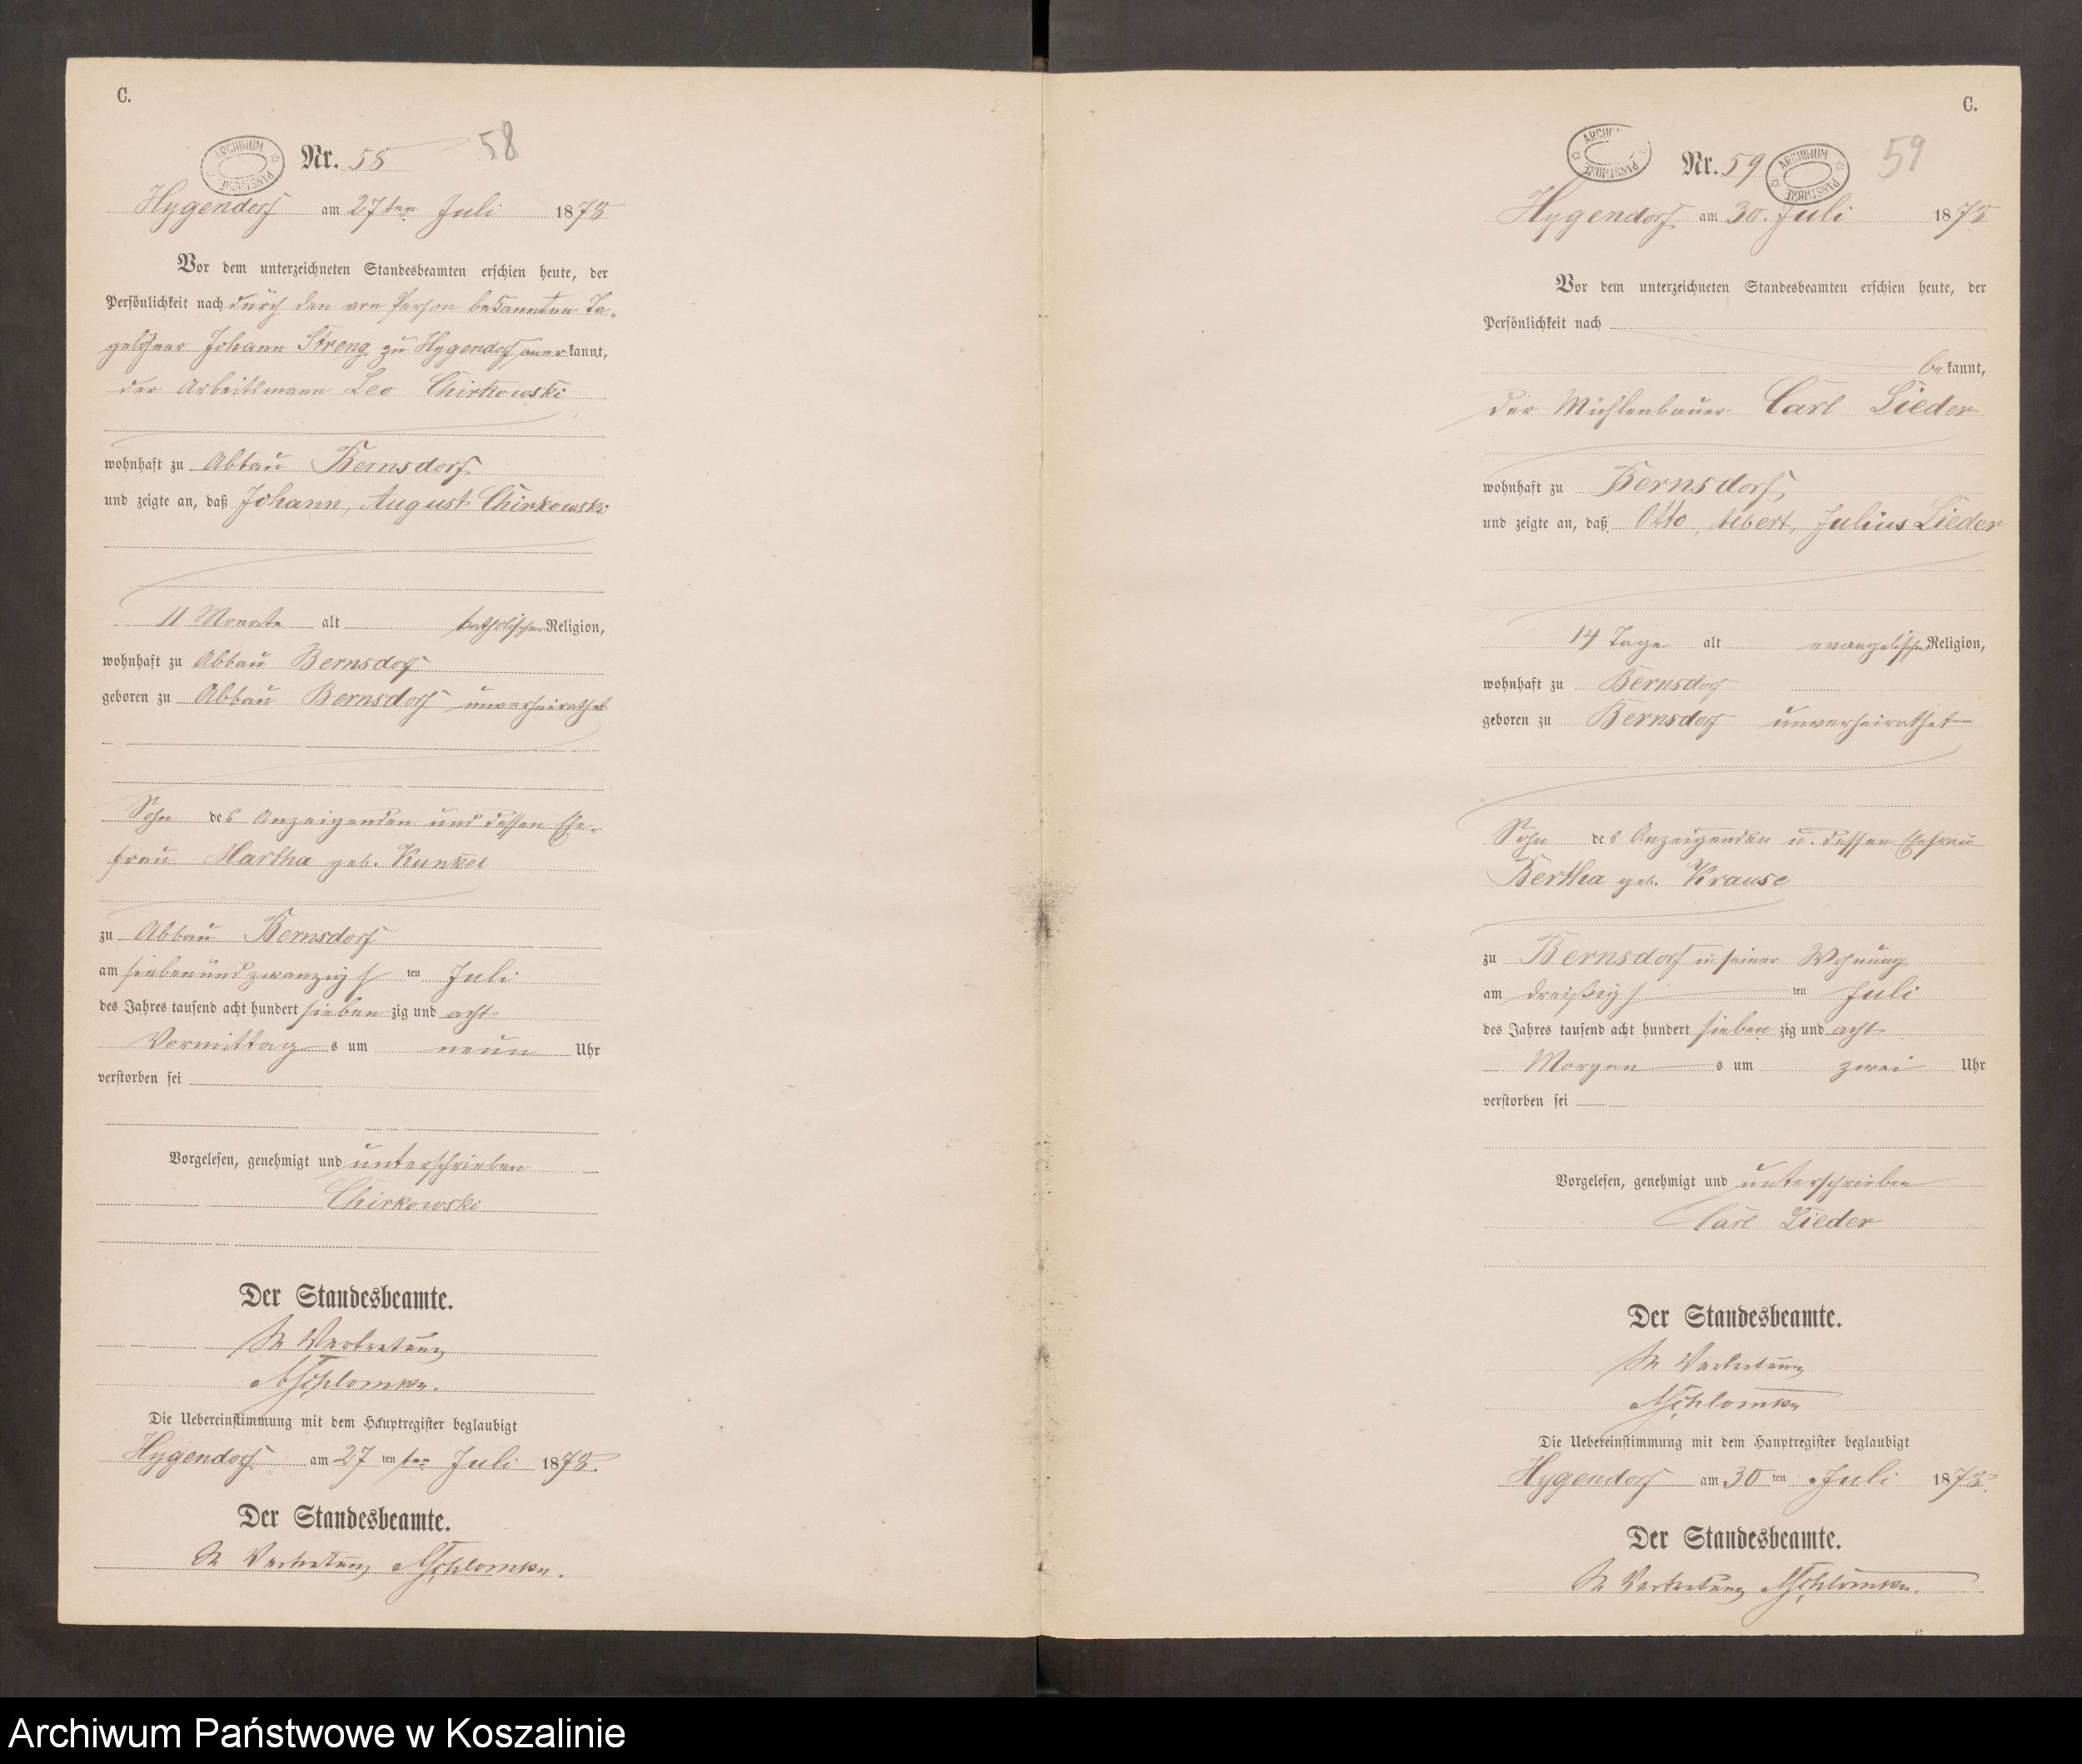 C.
ARCHIWUM PAŃSTWOWE
Nr. 58
58
Hygendorf am 27ten Juli 1878
Vor dem unterzeichneten Standesbeamten erschien heute, der
Persönlichkeit nach durch den von Person bekannten Ta-
gelöhner Johann Streng zu Hygendorf anerkannt,
der Arbeitsmann Leo Chirkowski
wohnhaft zu Abbau Bernsdorf
und zeigte an, daß Johann, August Chirkowski
11 Monate alt katholischer Religion,
wohnhaft zu Abbau Bernsdorf
geboren zu Abbau Bernsdorf unverheirathet
Sohn des Anzeigenden und dessen Ehe-
frau Martha geb. Kunkel
zu Abbau Bernsdorf
am siebenundzwanzigsten Juli
des Jahres tausend acht hundert siebenzig und acht
Vormittags um neun Uhr
verstorben sei
Vorgelesen, genehmigt und unterschrieben
Chirkowski
Der Standesbeamte.
In Vertretung
Die Uebereinstimmung mit dem Hauptregister beglaubigt
Hygendorf am 27 ten ten Juli 1878.
Der Standesbeamte.
In Vertretung
C.
ARCHIWUM PAŃSTWOWE
Nr. 59
ARCHIWUM PAŃSTWOWE
59
Hygendorf am 30. Juli 1878
Vor dem unterzeichneten Standesbeamten erschien heute, der
Persönlichkeit nach
bekannt,
der Mühlenbauer Carl Lieder
wohnhaft zu Bernsdorf
und zeigte an, daß Otto, Albert, Julius Lieder
14 Tage alt evangelischer Religion,
wohnhaft zu Bernsdorf
geboren zu Bernsdorf unverheirathet
Sohn des Anzeigenden u. dessen Ehefrau
Bertha geb. Krause
zu Bernsdorf in seiner Wohnung
am dreißigsten Juli
des Jahres tausend acht hundert siebenzig und acht
Morgens um zwei Uhr
verstorben sei
Vorgelesen, genehmigt und unterschrieben
Carl Lieder
Der Standesbeamte.
In Vertretung
Die Uebereinstimmung mit dem Hauptregister beglaubigt
Hygendorf am 30 ten Juli 1878.
Der Standesbeamte.
In Vertretung
Archiwum Państwowe w Koszalinie